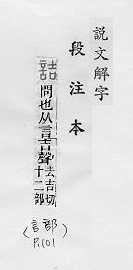 說文解字
段注本
詰 問也从言吉聲 去吉切
十二部
(言部
P.101)